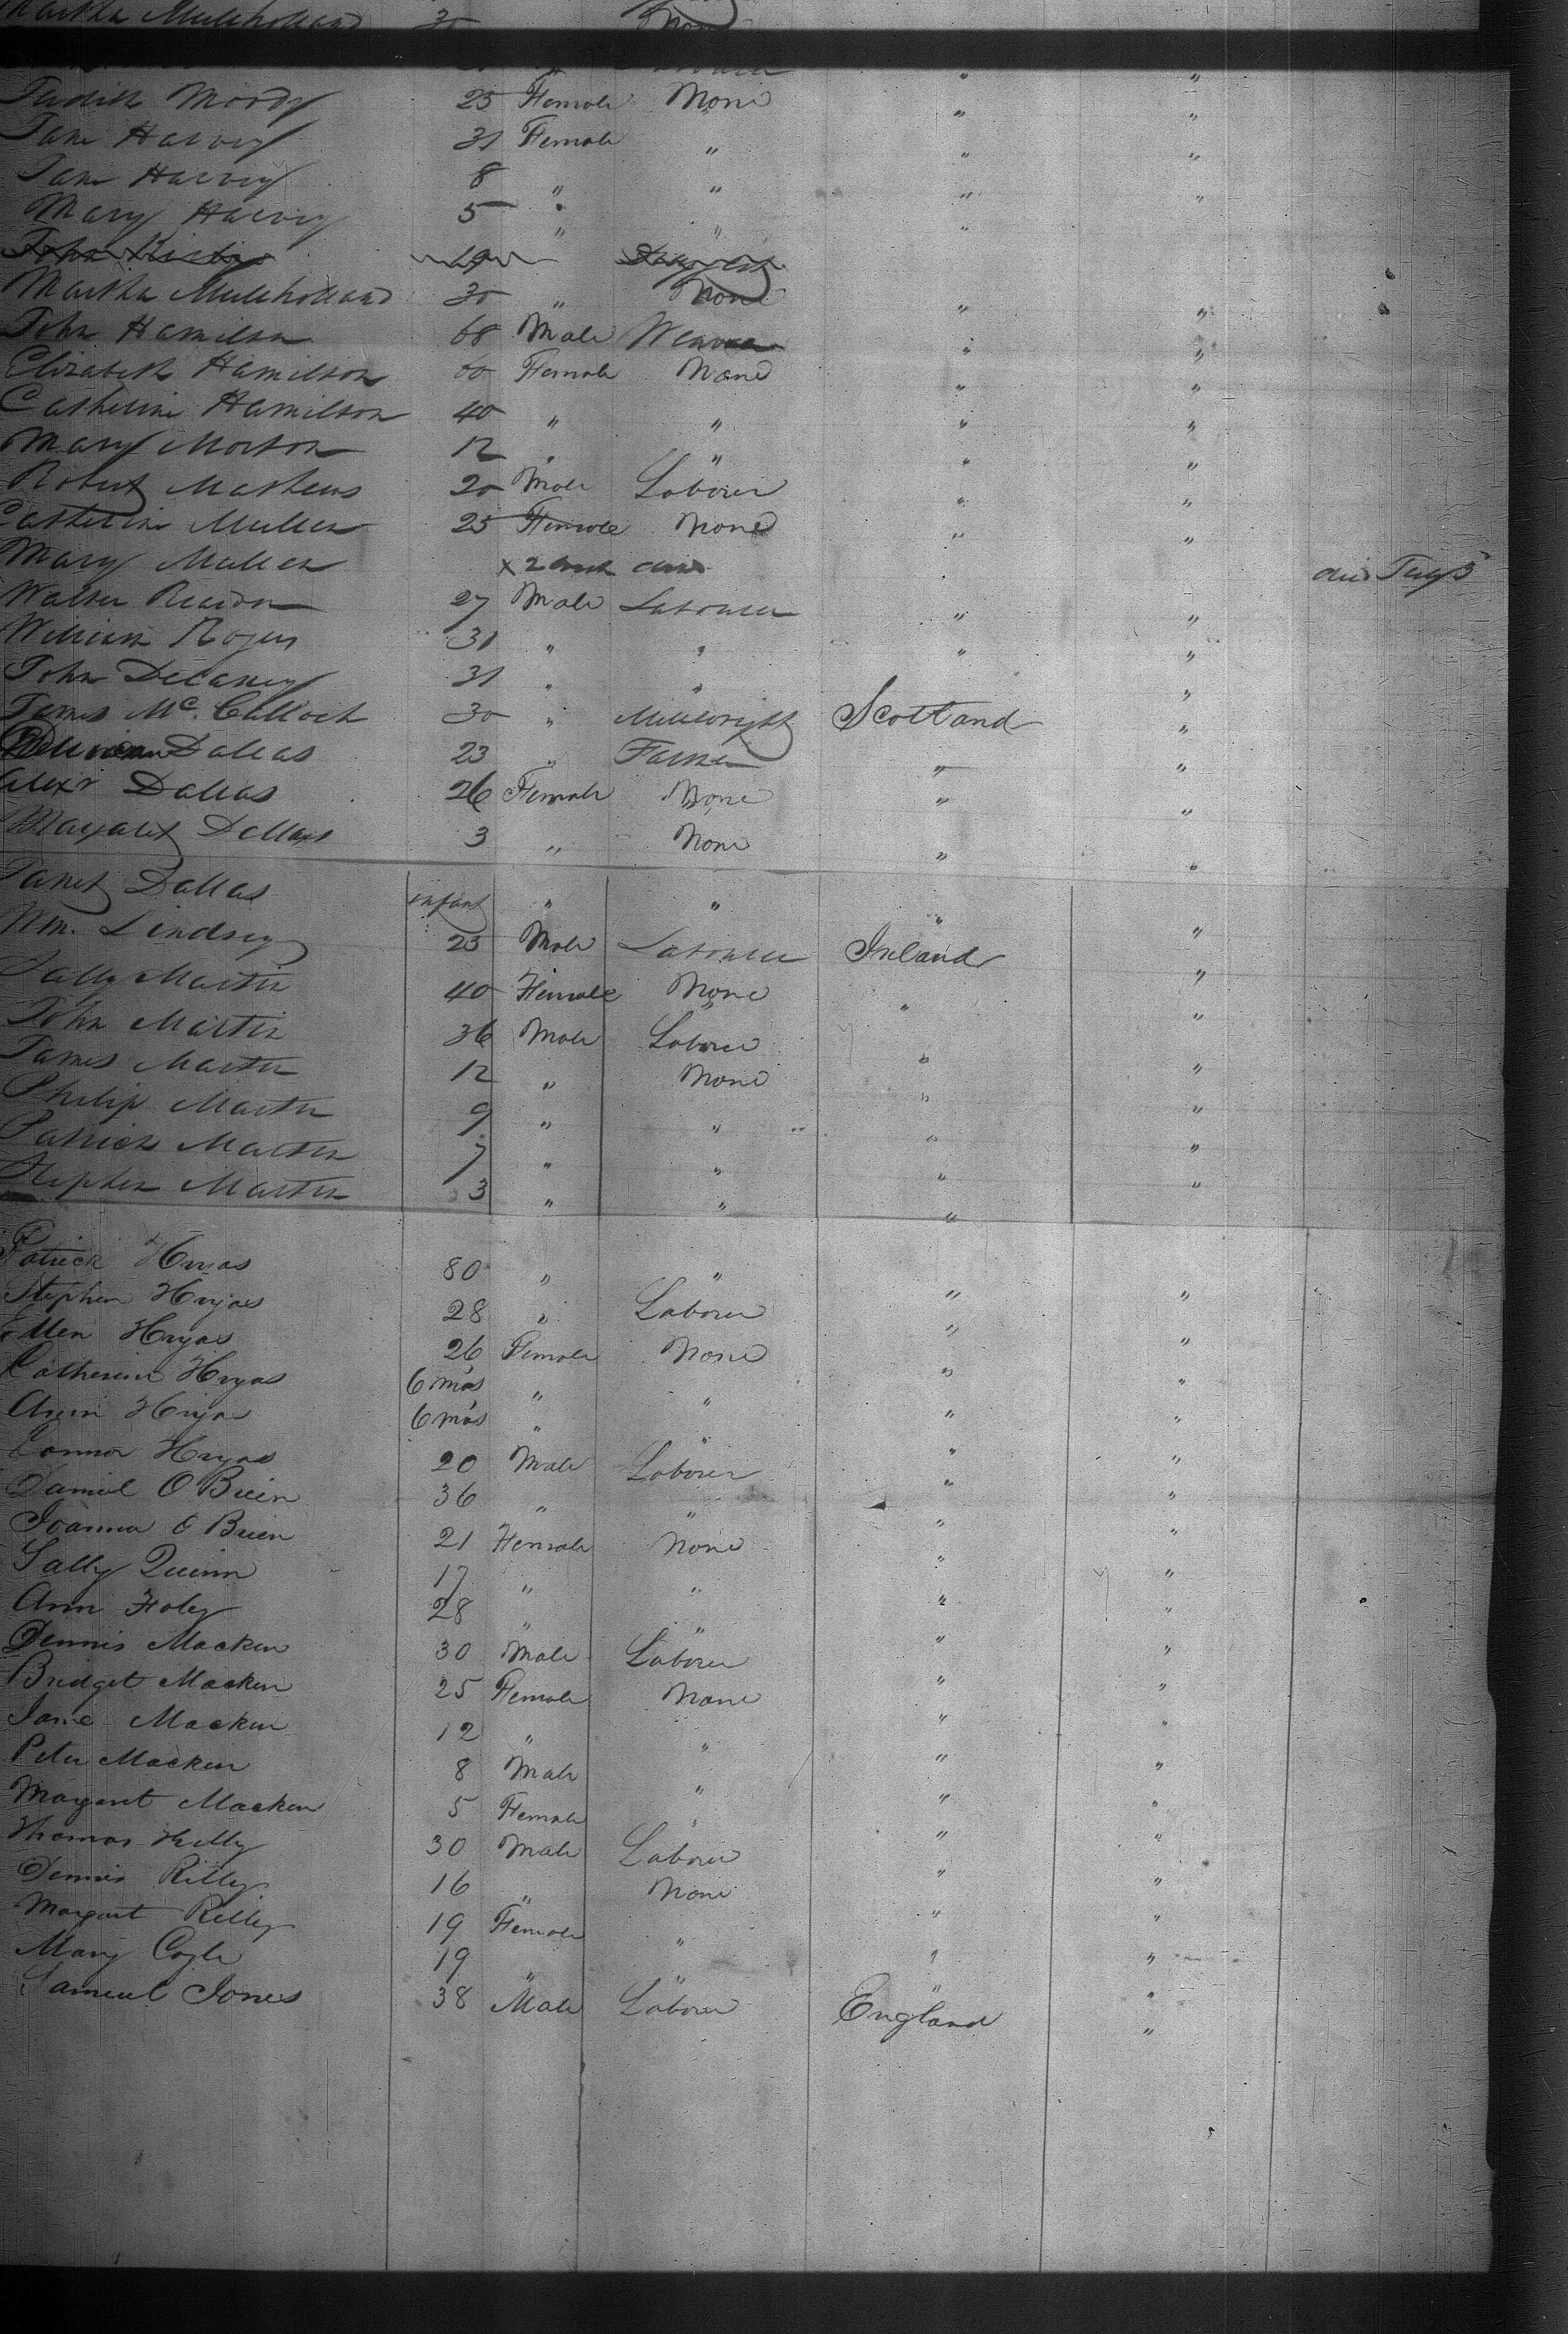 Martha Mulholland 30 None
Judith Moody 25 Female None " "
Jane Harvey 31 Female " " "
Jane Harvey 8 " " " "
Mary Harvey 5 " " "
John 19
Martha Mulholland 30 " None " "
John Hamilson 68 Male Weaver " "
Elizabeth Hamilson 60 Female None " "
Catherine Hamilson 40 " " " "
Mary Morton 12 " " " "
Robert Mathews 20 Male Laborer " "
Catherine Mullen 25 Female None " "
Mary Mullen x 2 died July 5
Walter Reardon 27 Male Labourer " "
William Rogers 31 " " " "
John Delaney 31 " " "
James Mc. Culloch 30 " Millwright Scotland "
Dallas 23 " Farmer " "
Alexr Dallas 26 Female None " "
Margaret Dallas 3 " None " "
Janet Dallas infant " " " "
Wm. Lindsey 25 Male Labourer Ireland "
Sally Martin 40 Female None " "
John Martin 36 Male Laborer " "
James Martin 12 " None " "
Philip Martin 9 " " " "
Patrick Martin 7 " " " "
Stephen Martin 3 " " "
Patrick Hryas 80 " " " "
Stephen Hryas 28 " Laborer " "
Ellen Hryas 26 Female None " "
Catherine Hryas 6 mos " " " "
Ann Hryas 6 mos " " " "
Connor Hryas 20 Male Laborer " "
Daniel O Brien 36 " " " "
Joanna O Brien 21 Female None " "
Sally Quinn 17 " " " "
Ann Foley 28 " " " "
Dennis Macken 30 Male Laborer " "
Bridget Macken 25 Female None " "
Jane Macken 12 " " " "
Peter Macken 8 Male " " "
Margaret Macken 5 Female " " "
Thomas Kelly 30 Male Laborer " "
Dennis Rilley 16 " None " "
Margaret Rilley 19 Female " " "
Mary Coyle 19 " " " "
Samuel Jones 38 Male Laborer England "